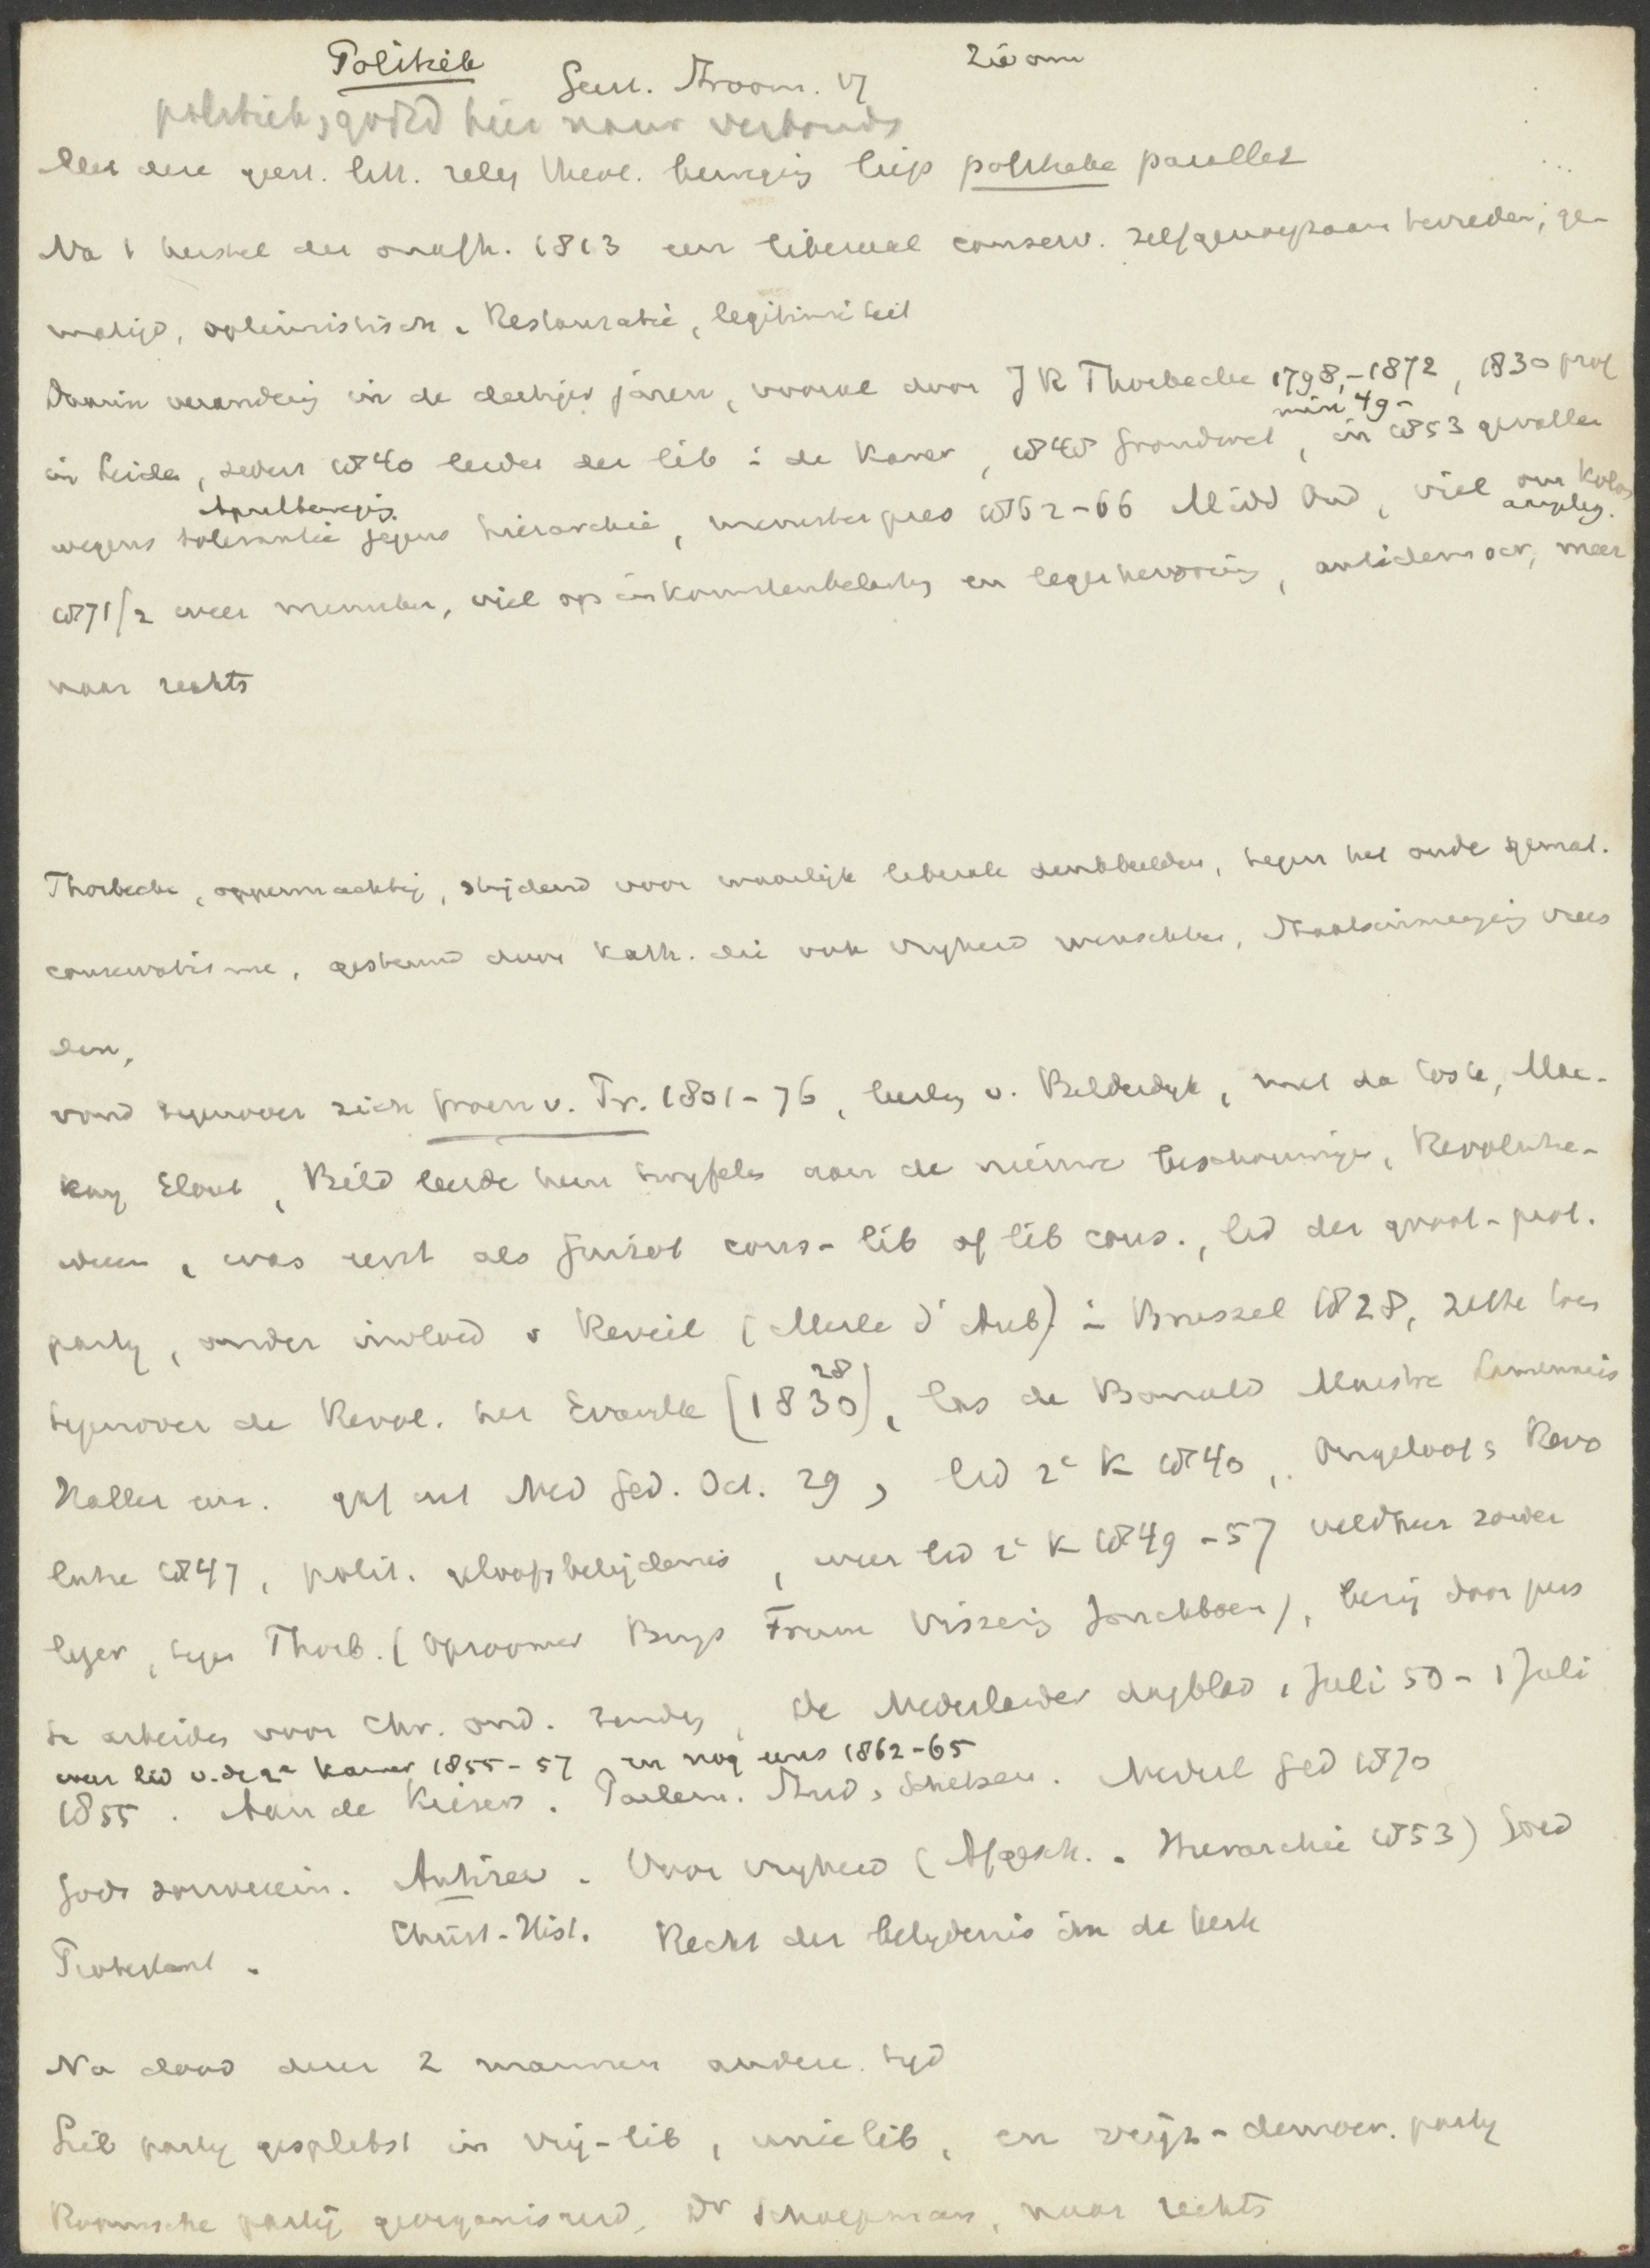 Politiek
Zie om
Geest. Stroom. VI
politiek, godsd hier nauw verbonden
Met deze geest. litt. relig theol. beweging liep politieke parallel
Na 't herstel der onafh. 1813 een liberaal conserv. zelfgenoegzaam tevreden, ge-
matigd, optimistisch. Restauratie, legitimiteit
Daarin verandering in de dertiger jaren, vooral door J R Thorbecke 1798-1872, 1830 prof
min 49-
in Leiden, sedert 1840 leider der lib in de Kamer, 1848 Grondwet, in 1853 gevallen
Aprilbeweging.
wegens tolerantie jegens hierarchie, minister pres 1862-66 Midd Ond, viel over Kolon
aangeleg.
1871/2 weer minister, viel op inkomstenbelasting en legerhervorming, antidemocr, meer
naar rechts
Thorbecke, oppermachtig, strijdend voor waarlijk liberale denkbeelden, tegen het oude gemat.
conservatisme, gesteund door Kath. die ook vrijheid wenschten, Staatsinmenging vrees
den,
vond tegenover zich Groen v. Pr. 1801-76, leerling v. Bilderdijk, met da Costa, Mac-
kay Elout, Bild leerde hem twijfelen aan de nieuwe beschouwingen, Revolutie-
ideen, was eerst als Guizot cons-lib of lib cons., lid der groot-prot.
partij, onder invloed v Reveil (Merle d'Aub) in Brussel 1828, zette hij
tegenover de Revol. het Evangelie (1830), 28 las de Bonald Maistre Lamennais
Haller enz. gaf uit Ned Ged. Oct. 29, lid 2e K 1840, Ongeloof & Revo
lutie 1847, polit. geloofsbelijdenis, weer lid 2e K 1849-57 veldheer zonder
leger, tegen Thorb. (Opzoomer Buys Fruin Vissering Jonckbloet), bezig door pers
te arbeiden voor Chr. ond. zending, De Nederlander dagblad 1 Juli 50 - 1 Juli
weer lid v. de 2e Kamer 1855-57 en nog eens 1862-65
1855. Aan de Kiezers. Parlem. Stud & Schetsen. Nederl Ged 1870
Gods souverein. Antirev. Voor vrijheid (Afgesch. Hierarchie 1853) Goed
Protestant. Christ-Hist. Recht der belijdenis in de kerk
Na dood dezer 2 mannen andere tijd
Lib partij gesplitst in vrij-lib, unielib, en vrijz-democr. partij
Roomsche partij georganiseerd, Dr Schaepman, naar rechts